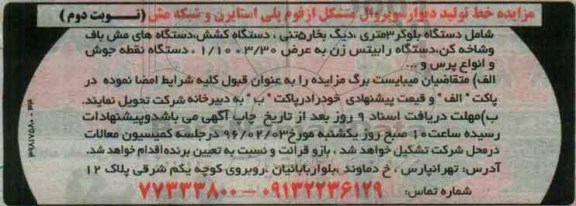 مزایده خط تولید دیوار سوپروال متشکل ازفوم پلی استایرن و شبکه مش (نـــوبت دوم)
شامل دستگاه بلوکر۳متری ،دیگ بخار۵تنی ، دستگاه کشش،دستگاه های مش باف
وشاخه کن،دستگاه رابیتس زن به عرض ۳/۳۰ ،۱/۱۰ ، دستگاه نقطه جوش
و انواع پرس و ...
الف) متقاضیان میبایست برگ مزایده را به عنوان قبول کلیه شرایط امضا نموده در
پاکت " الف " و قیمت پیشنهادی خودرادرپاکت " ب " به دبیرخانه شرکت تحویل نمایند.
ب)مهلت دریافت اسناد ۹ روز بعد از تاریخ چاپ آگهی می باشدوپیشنهادات
رسیده ساعت۱۰ صبح روز یکشنبه مورخ۹۶/۰۲/۰۳ درجلسه کمیسیون معاملات
درمحل شرکت تشکیل خواهد شد ، بازو قرائت و نسبت به تعیین برنده اقدام خواهد شد.
آدرس: تهرانپارس ، خ دماوند ،بلوارباباییان ،روبروی کوچه یکم شرقی پلاک ۱۲
شماره تماس: ۰۹۱۳۲۲۳۶۱۲۹ – ۷۷۳۳۳۸۰۰